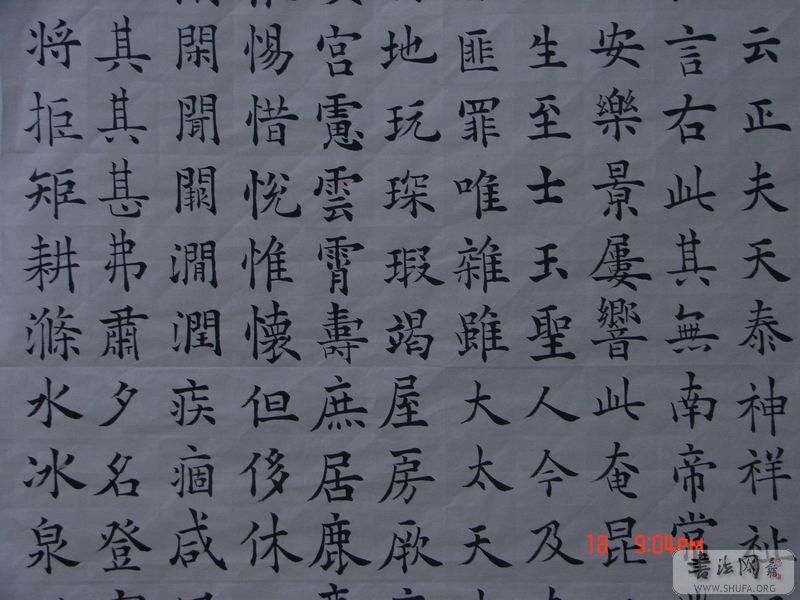 云正夫天泰神祥祉
言右此其無南帝常
安樂景屢響此奄昆
生至士玉聖人今及
匪罪唯雜雖大太天
地玩琛瑕竭屋房厥
宮慮雲霄壽庶居鹿
惕惜悅惟懷但侈休
閑聞澗潤疾痼咸
其其甚弗肅夕名登
将拒矩耕滌水冰泉
18 9:04PM
書法网
WWW.SHUFA.ORG